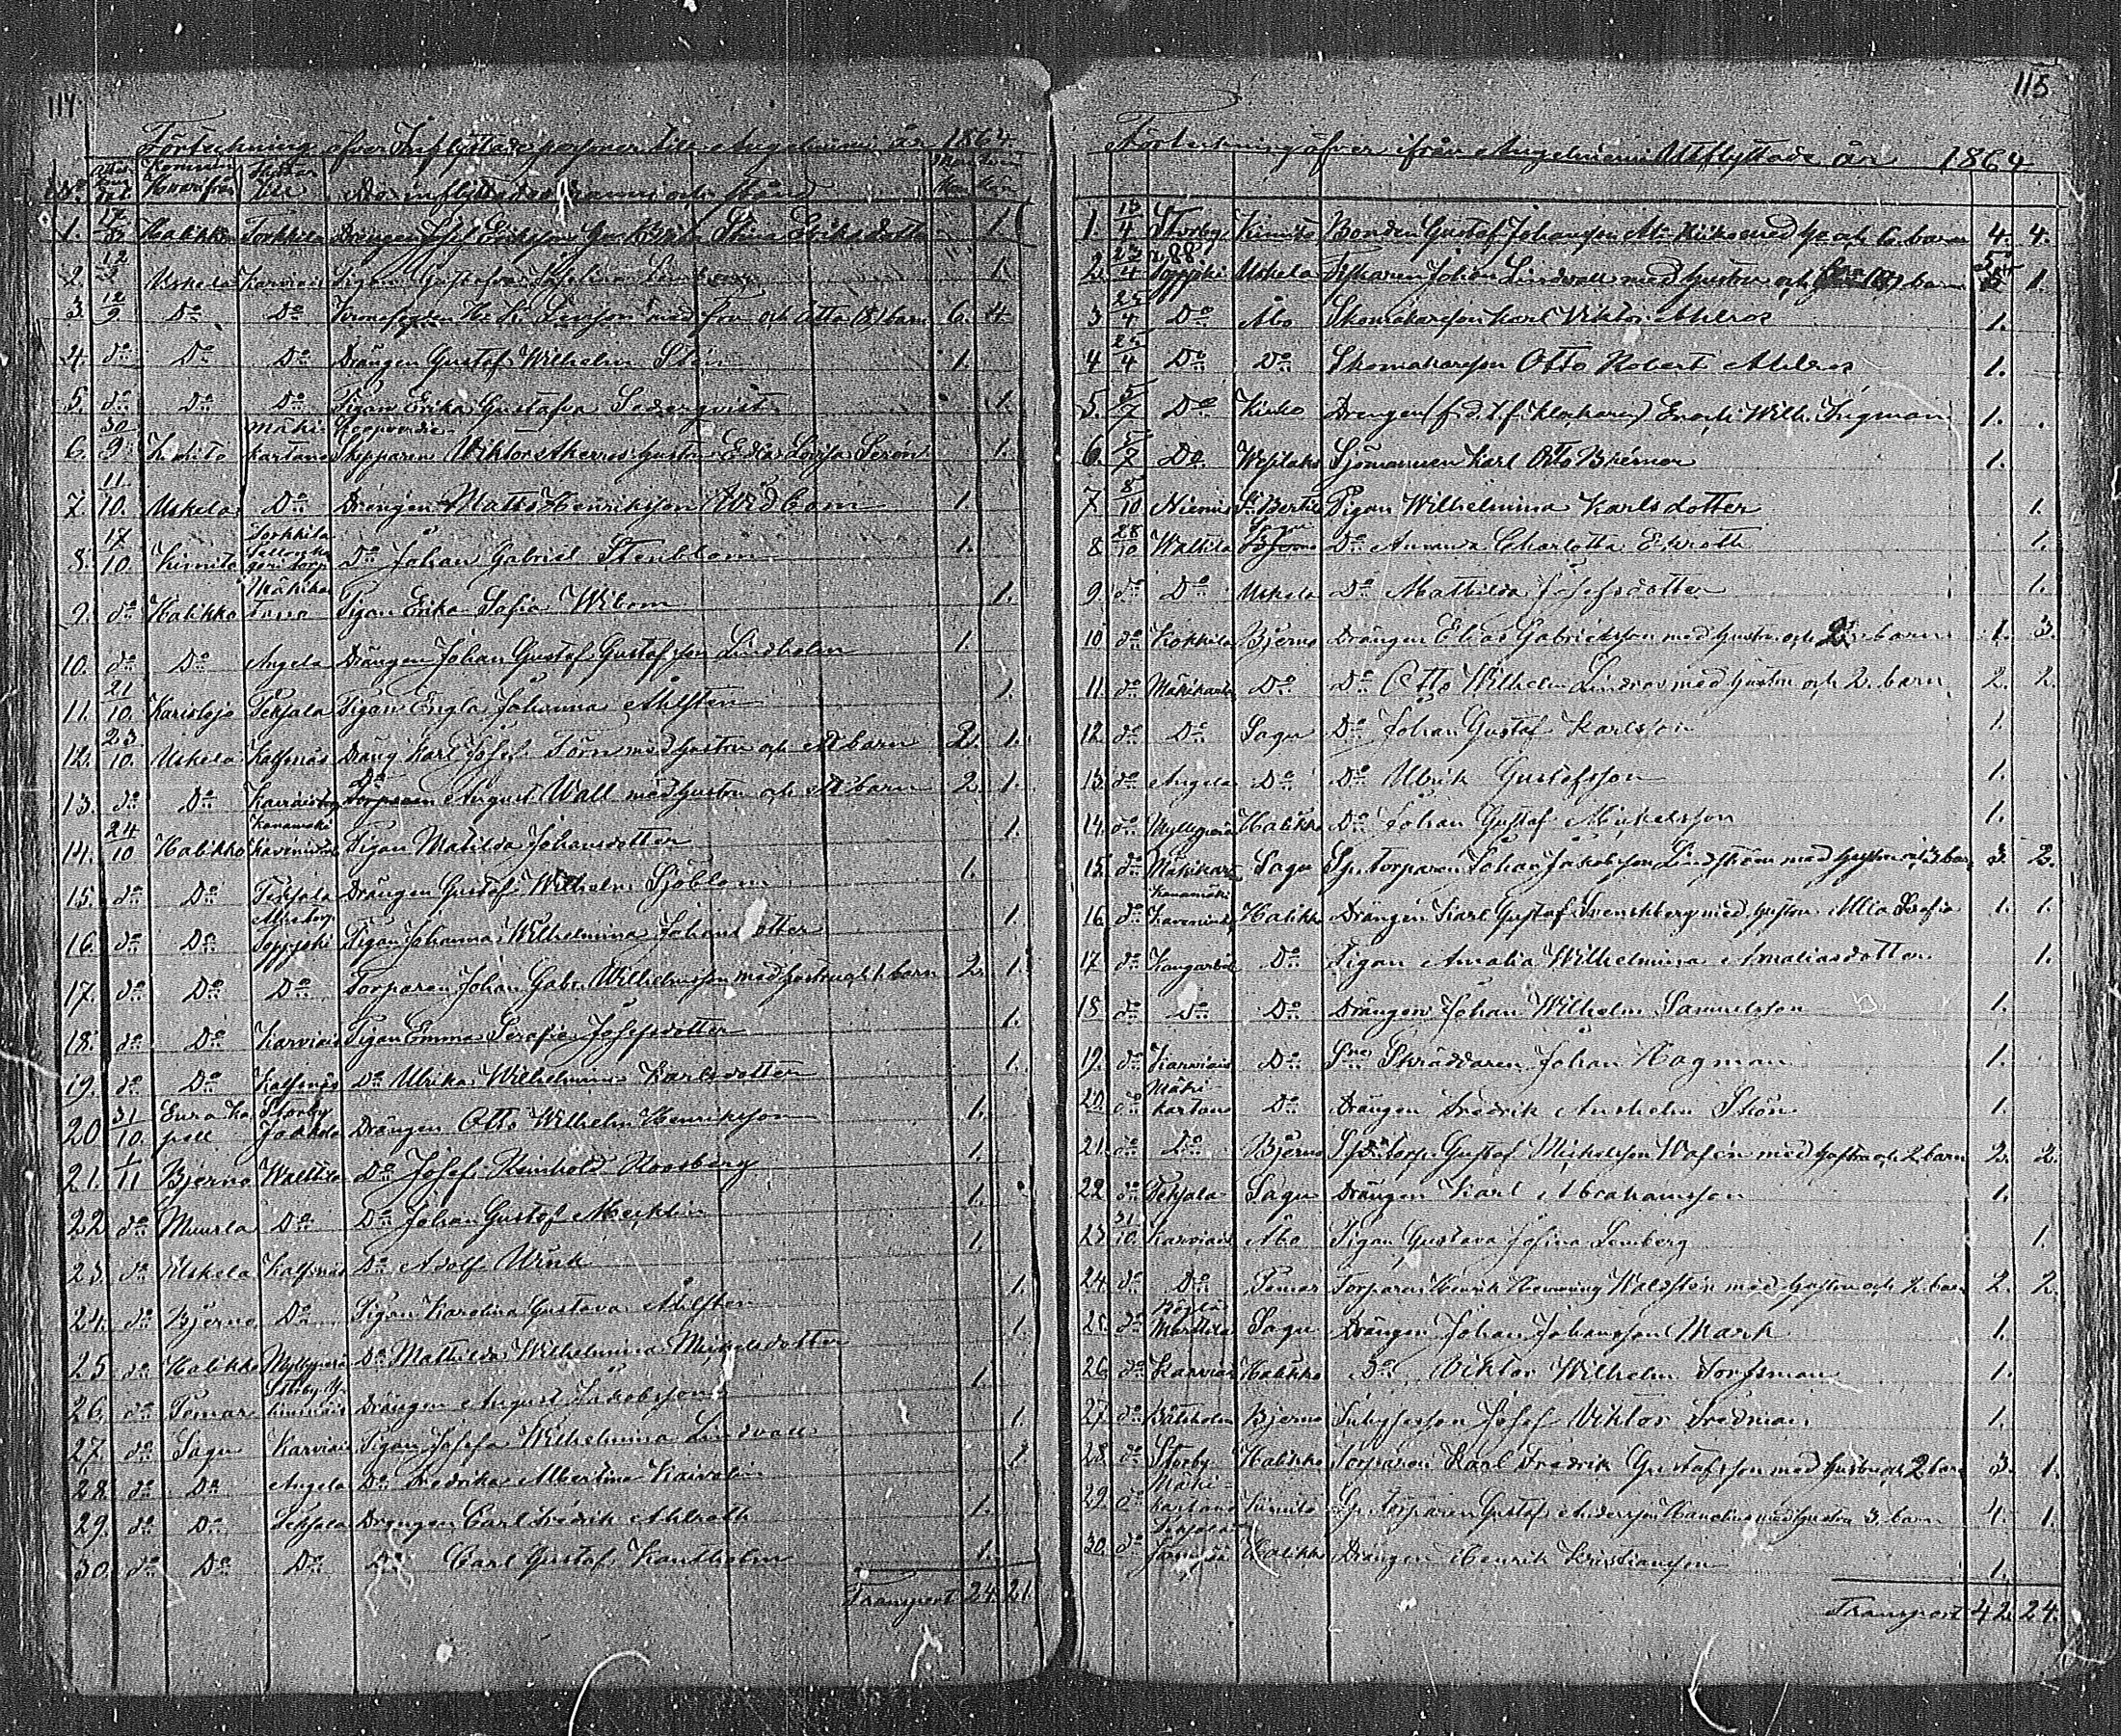 114
Förteckning öfver Inflyttade personer till Angelniemi år 1864.
No. Kommit Hvarifrån Flyttar till De inflyttades namn och stånd Mankön
1. 17/3 Halikko Torkkila Drengen Josef Ericksson Stina Eriksdotter 1.
2. 12/ Uskela Karviais Pigan Gustafva Josefina Lemberg 1.
3. 12/9. Do Do Levisson med Fru och Åtta (8) barn 6. 4.
4. do Do Do Drängen Gustaf Wilhelm Stén 1.
5. do Do Do Pigan Erika Gustafva Sederqvist 1.
6. 30/9 Kimito Mäkikartano Koopverdie Skepparen Viktor hustru Edla Lovisa Serén 1.
7. 11/10. Uskela Do Drengen Matts Henriksson Widbom 1.
8. 17/10. Kimito Torkkila torp Do Johan Gabriel Stenblom 1.
9. do Halikko Mäkikartano Pigan Erika Sofia Wibom 1.
10. do Do Angela Drängen Johan Gustaf Gustafsson Lindholm 1.
11. 21/10. Karislojo Pekjala Pigan Engla Johanna Ahlsten 1.
12. 23/10. Uskela Kalfsnäs Dräng Karl Josef Törn med hustru och ett barn 2. 1.
13. do Do Karviaistorp Do Torparen August Wall med hustru och ett barn 2. 1.
14. 24/10 Halikko Kanamäki Pigan Matilda Johansdotter 1.
15. do Do Pekjala Drängen Gustaf Wilhelm Sjöblom 1.
16. do Do Soppjoki Pigan Johanna Wilhelmina Johansdotter 1.
17. do Do Do Torparen Johan Gabr. Wilhelmsson med hustru och 1 barn 2. 1.
18. do Do Karviais Pigan Emma Serafia Josefsdotter 1.
19. do Do Kalfsnäs Do Ulrika Wilhelmina Karlsdotter 1.
20 31/10. Eura Kapell Storby Jaakkola Drängen Otto Wilhelm Henriksson 1.
21. 1/11 Bjerno Walttila Do Josef Reinhold Roosberg 1.
22 do Muurla Do Do Johan Gustaf Mecklin 1.
23. do Uskela Kalfsnäs Do Adolf Wink 1.
24. do Bjerno Do Pigan Karolina Gustava Ahlsten 1.
25 do Halikko Myllyperä Do Mathilda Wilhelmina Mickelsdotter 1.
26. do Pemar Storby Drängen August Jakobsson 1.
27. do Sagu Karviais Pigan Josefa Wilhelmina Lindvall 1.
28. do Do Angela Do Fredrika Albertina 1
29. do Do Pekjala Drengen Carl Fredrik Ahlroth 1.
30. do Do Do Do Carl Gustaf Kantholm 1.
Transport 24. 21
115
Förteckning öfver ifrån Angelniemi Utflyttade år 1864.
1. 13/4 Storby Kimito Bonden Gustaf Johansson med hu och 6. barn 4. 4.
2. 23/4 Soppjoki Uskela Johan Lindvall med hustru och barn 1.
3 25/4 Do Åbo Skomakaresson Karl Viktor Ahlros 1.
4 25/4 Do Do Skomakaresson Otto Robert Ahlros 1.
5. 5/7 Do Kisko Drengen (f. d. Klockaren) Enock Wilh. Ingman 1.
6. 5/7 Do Westlaks Sjömannen Karl Otto Bjerner 1.
7 8/10 Niemis St Bertils Pigan Wilhelmina Karlsdotter 1.
8 28/10 Waltila Sagu Do Amanda Charlotta Ekroth 1.
9. do Do Uskela Do Mathilda Josefsdotter 1.
10 do Kokkila Bjerno Drängen Elias Gabrielsson med hustru och 2 barn 1. 3.
11. do Mäkikarta Do Do Otto Wilhelm Lindros med hustru och 2. barn 2. 2.
12 do Do Sagu Do Johan Gustaf Karlsson 1.
13. do Angela Do Do Ulrik Gustafsson 1.
14. do Myllyperä Halikko Do Johan Gustaf Mickelsson 1.
15. do Mäkikart. Sagu Torparen Johan Jakobsson Lindström med hustru och 3 bar 3. 2.
16 do Kanamäki Halikko Drängen Karl Gustaf Svenskberg med hustru Sofia 1. 1.
17 do Kangarböle Do Pigan Amalia Wilhelmina Amaliasdotter 1.
18 do Do Do Drängen Johan Wilhelm Samuelsson 1.
19. do Karviais Do Skräddaren Johan Hagman 1.
20. do Mäkikartano Do Drängen Fredrik Anshelm Stén 1.
21. do Do Bjerno torp. Gustaf Mickelsson Wafén med hustru och 2 barn 2. 2.
22 do Pekjala Sagu Drängen Karl Abrahamsson 1.
23 31/10 Karviais Åbo Pigan Gustava Josefina Lemberg 1.
24 do Do Pemar Torparen Henrik Henning Waldstén med hustru och 2 barn 2. 2.
25. do Marttila Sagu Drängen Johan Johansson Mark 1.
26. do Karviais Halikko Do Viktor Wilhelm Forssman 1.
27. do Båtsholm Bjerno Josef Viktor Fredman 1.
28. do Storby Halikko Torparen Karl Fredrik Gustafsson med hustru och 2 barn 3. 1.
29. do Mäkikartano Kimito Torparen Gustaf Andersson med hustru 3. barn 4. 1.
30. do Pekjala Halikko Drängen Henrik Kristiansson 1.
Transport 42. 24.